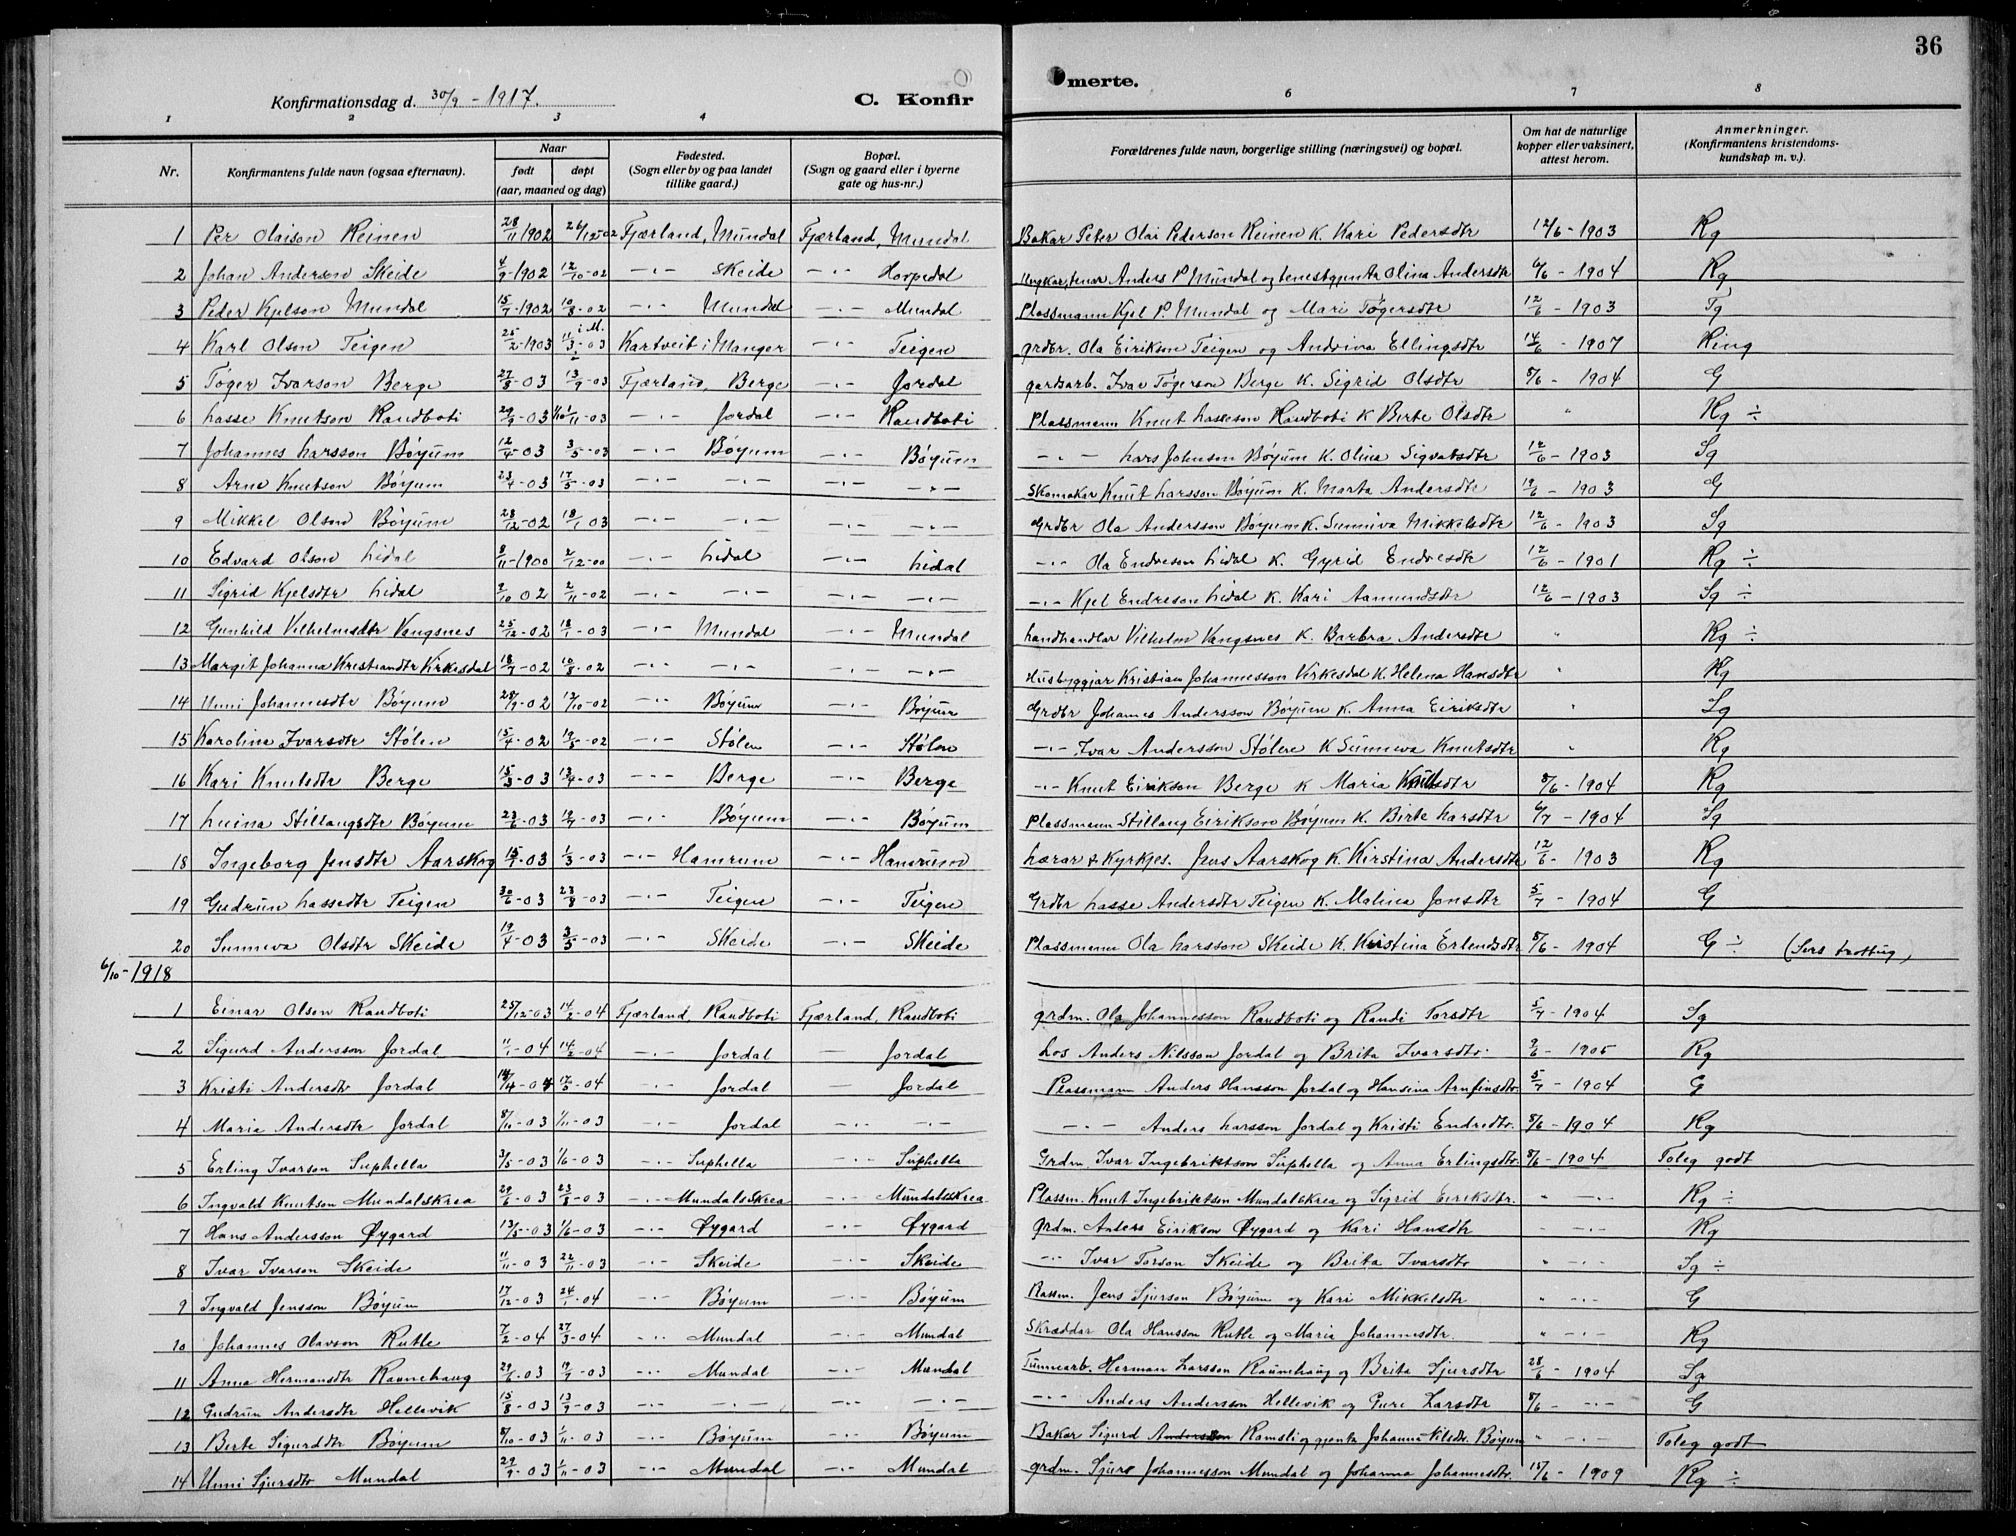 36
Konfirmationsdag d. 30/9 - 1917.
C. Konfir
merte.
1 2 3 4 6 7 8
Nr. Konfirmantens fulde navn (ogsaa efternavn). Naar født døpt (aar, maaned og dag) Fødested. (Sogn eller by og paa landet tillike gaard.) Bopæl. (Sogn og gaard eller i byerne gate og hus-nr.) Forældrenes fulde navn, borgerlige stilling (næringsvei) og bopæl. Om hat de naturlige kopper eller vaksinert, attest herom. Anmerkninger. (Konfirmantens kristendomskundskap m. v.).
1 Per Olaison Reinen 28/11 1902 26/12-02 Fjærland, Mundal Fjærland, Mundal Bakar Peter Olai Pederson Reinen K. Kari Pedersdtr 12/6 - 1903 Rg
2 Johan Anderson Skeide 4/9 - 1902 12/10-02 -"- Skeide -"- Horpedal Anders P Mundal og tenestgjenta Olina Andersdtr 6/6 - 1904 Rg
3 Peder Kjelson Mundal 15/7-1902 10/8-02 -"- Mundal -"- Mundal Plassmann Kjel P. Mundal og Mari Tøgersdtr 12/6 - 1903 Tg
4 Karl Olson Teigen 25/2-1903 11/3-03 i M. Kartveit i Manger -"- Teigen grdbr. Ola Eirikson Teigen og Andrina Ellingsdtr 14/6 - 1907 Ring
5 Tøger Ivarson Berge 27/8-03 13/9-03 Fjærland, Berge -"- Jordal gardsarb. Ivar Tøgerson Berge K. Sigrid Olsdtr 8/6 - 1904 G
6 Lasse Knutson Raudboti 29/9-03 1/11-03 -"- Jordal -"- Raudboti Plassmann Knut Lasseson Raudboti K Berte Olsdtr " Rg ÷
7 Johannes Larsson Bøyum 12/4-03 3/5-03 -"- Bøyum -"- Bøyum -"- Lars Johnson Bøyum K. Olina Sigvatsdtr 12/6 - 1903 Sg
8 Arne Knutson Bøyum 23/4-03 17/5-03 -"- -"- -"- Skomakar Knut Larsson Bøyum K. Marta Andersdtr 19/6 - 1903 G
9 Mikkel Olson Bøyum 28/12-02 18/1 03 -"- -"- -"- Grdbr Ola Andersson Bøyum K. Sunniva Mikkelsdtr 12/6 - 1903 Sg
10 Edvard Olson Lidal 8/11-1900 2/12-00 -"- Lidal -"- Lidal -"- Ola Endreson Lidal K. Gyrid Endresdtr 12/6 - 1901 Rg ÷
11 Sigrid Kjelsdtr Lidal 9/10 02 2/11-02 -"- -"- -"- -"- Kjel Endreson Lidal K. Kari Aamundsdtr 12/6 - 1903 Sg ÷
12 Gunhild Vilhelmsdtr Vangsnes 25/12-02 18/1-03 -"- Mundal -"- Mundal Landhandlar Vilhelm Vangsnes K. Barbra Andersdtr " Rg ÷
13 Margit Johanna Kristiandtr Virkesdal 18/7-02 10/8-02 -"- -"- -"- Husbyggjar Kristian Johannesson Virkesdal K. Helena Hansdtr " Rg
14 Unni Johannesdtr Bøyum 28/9-02 12/10-02 -"- Bøyum -"- Bøyum Grdbr Johannes Andersson Bøyum K. Anna Eiriksdtr " Sg
15 Karolina Ivarsdtr Stølen 15/4-02 19/5-02 -"- Stølen -"- Stølen -"- Ivar Andersson Stølen K Sunneva Knutsdtr " Rg
16 Kari Knutsdtr Berge 15/3-03 13/4-03 -"- Berge -"- Berge -"- Knut Eirikson Berge K Maria Knutsdtr 8/6 - 1904 Rg
17 Luina Stillaugsdtr Bøyum 23/6-03 12/7-03 -"- Bøyum -"- Bøyum Plassmann Stillaug Eirikson Bøyum K. Birte Larsdtr 6/7 - 1904 Sg
18 Ingeborg Jensdtr Aarskog 15/1-03 1/3-03 -"- Hamrum -"- Hamrum Lærar & Kyrkjes. Jens Aarskog K. Kirstina Andersdtr 12/6- 1903 Rg
19 Gudrun Lassedtr Teigen 30/6-03 23/8-03 -"- Teigen -"- Teigen Grdbr Lasse Andersdtr Teigen K. Malina Jonsdtr 5/7 - 1904 G
20 Sunneva Olsdtr Skeide 19/4-03 3/5-03 -"- Skeide -"- Skeide Plassmann Ola Larsson Skeide K. Kristina Erlendsdtr 8/6 - 1904 G ÷
6/10-1918
1 Einar Olson Raudboti 25/12-03 14/2-04 Fjærland, Raudboti Fjærland, Raudboti grdm. Ola Johannesson Raudboti og Randi Torsdtr 5/7 - 1904 Sg
2 Sigurd Andersson Jordal 11/1-04 14/2-04 -"- Jordal — Jordal Los Anders Nilsson Jordal og Brita Ivarsdtr. 9/6 - 1905 Rg
3 Kristi Andersdtr Jordal 14/4-04 17/5-04 -"- Jordal — Jordal Plassmann Anders Hansson Jordal og Hansina Arnfinsdtr. 5/7 - 1904 G
4 Maria Andersdtr Jordal 8/11-03 1/11-03 -"- Jordal -"- -"- -"- Anders Larsson Jordal og Kristi Endredtr. 8/6 - 1904 Rg
5 Erling Ivarson Suphella 3/5-03 1/6-03 -"- Suphella -"- Suphella Grdm. Ivar Ingebriktson Suphella og Anna Erlingsdtr. 8/6 - 1904 Toleg godt
6 Ingvald Knutson Mundalskrea 29/6-03 23/8-03 -"- Mundalskrea -"- Mundalskrea Plassm. Knut Ingebriktson Mundalskrea og Sigrid Eiriksdtr. " -"- Rg ÷
7 Hans Andersson Øygard 13/5-03 1/6-03 -"- Øygard -"- Øygard grdm. Anders Eirikson Øygard og Kari Hansdtr " -"- Rg
8 Ivar Ivarson Skeide 11/11-03 22/11-03 -"- Skeide -"- Skeide -"- Ivar Torson Skeide og Brita Ivarsdtr " -"- Sg ÷
9 Ingvald Jensson Bøyum 17/12-03 24/1-04 -"- Bøyum -"- Bøyum Plassm. Jens Sjurson Bøyum og Kari Mikkelsdtr " -"- G
10 Johannes Olavson Rutle 7/2-04 27/3-04 -"- Mundal -"- Mundal Skræddar Ola Hansson Rutle og Maria Johannesdtr. " -"- Rg
11 Anna Hermansdtr Raunehaug 29/6-03 19/7-03 -"- Mundal -"- Mundal Tunnearb. Herman Larsson Raunehaug og Brita Sjursdtr 28/6 - 1904 Sg
12 Gudrun Andersdtr Hellevik 15/8-03 13/9-03 -"- -"- -"- -"- Anders Anderson Hellevik og Guri Larsdtr 8/6 -"- G
13 Berte Sigurddtr Bøyum 8/10-03 1/11-03 -"- Bøyum -"- Bøyum Bakar Sigurd Anderson Ramsli og gjenta Johanna Nilsdtr. Bøyum " -"- Toleg godt
14 Unni Sjursdtr Mundal 29/9-03 1/11-03 -"- Mundal -"- Mundal grdm. Sjur Johannesson Mundal og Johanna Johannesdtr. 15/6 - 1909 Rg ÷